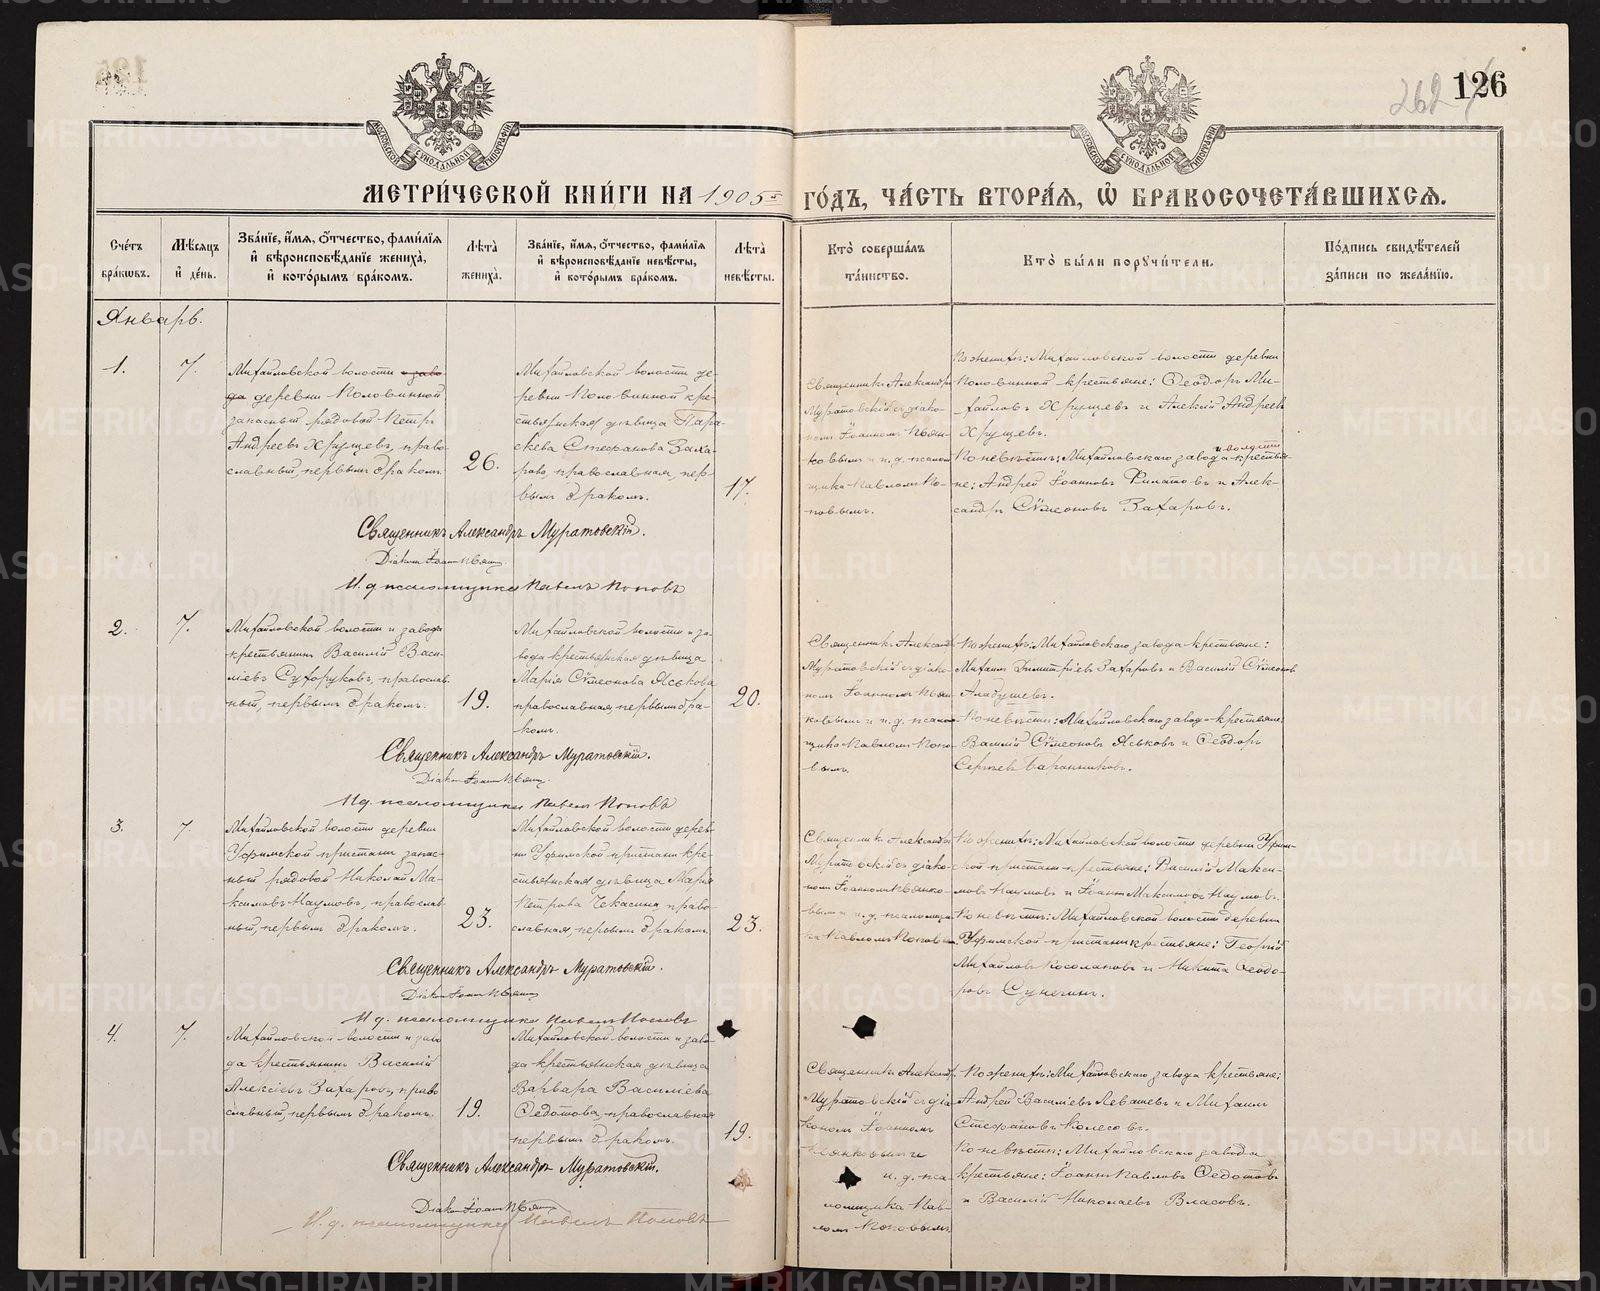 126
262
МОСКОВСКОЙ СѴНОДАЛЬНОЙ ТИПОГРАФІИ
МОСКОВСКОЙ СѴНОДАЛЬНОЙ ТИПОГРАФІИ
МЕТРИ́ЧЕСКОЙ КНИ́ГИ НА 1905й ГО́ДЪ, ЧА́СТЬ ВТОРА́Ѧ, Ѡ БРАКОСОЧЕТА́ВШИХСѦ.
Сче́тъ
бра́кѡвъ.
Мѣ́сѧцъ
и҆ де́нь.
Зва́нїе, и҆́мѧ, ѻ҆́тчество, фами́лїѧ
и҆ вѣроисповѣ́данїе жениха̀,
и҆ кото́рымъ бра́комъ.
Лѣ́та
жениха̀.
Зва́нїе, и҆́мѧ, ѻ҆́тчество, фами́лїѧ
и҆ вѣроисповѣ́данїе невѣ́сты,
и҆ кото́рымъ бра́комъ.
Лѣ́та
невѣ́сты.
Кто̀ соверша́лъ
та́инство.
Кто̀ бы́ли порꙋчи́тели.
По́дпись свидѣ́телей
за́писи по жела́нїю.
Январь.
1.
7.
Михайловской волости и заво-
да деревни Половинной
запасный рядовой Петръ
Андреевъ Хрущевъ, право-
славный, первымъ бракомъ.
26.
Михайловской волости де-
ревни Половинной кре-
стьянская дѣвица Пара-
скева Стефанова Заха-
рова, православная, пер-
вымъ бракомъ.
17.
Священникъ Александръ
Муратовскій съ діако-
номъ Іоанномъ Пьян-
ковымъ и и. д. псалом-
щика Павломъ По-
повымъ.
По женихѣ: Михайловской волости деревни
Половинной крестьяне: Ѳеодоръ Ми-
хайловъ Хрущевъ и Алексій Андреевъ
Хрущевъ.
и волости
По невѣстѣ: Михайловскаго завода крестья-
не: Андрей Іоанновъ Филатовъ и Алек-
сандръ Сѵмеоновъ Захаровъ.
Священникъ Александръ Муратовскій.
Діаконъ Іоаннъ Пьянк
И. д. псаломщика Павелъ Поповъ
2.
7.
Михайловской волости и завода
крестьянинъ Василій Васи-
ліевъ Сухоруковъ, православ-
ный, первымъ бракомъ.
19.
Михайловской волости и за-
вода крестьянская дѣвица
Марія Сѵмеонова Яськова
православная, первымъ бра-
комъ.
20.
Священникъ Александръ
Муратовскій съ діако-
номъ Іоанномъ Пьян-
ковымъ и и. д. псалом-
щика Павломъ Попо-
вымъ.
По женихѣ: Михайловскаго завода крестьяне:
Михаилъ Димитріевъ Захаровъ и Василій Сѵмеоновъ
Аладушевъ.
По невѣстѣ: Михайловскаго завода крестьяне:
Василій Сѵмеоновъ Яськовъ и Ѳеодоръ
Сергѣевъ Баранниковъ.
Священникъ Александръ Муратовскій.
Діаконъ Іоаннъ Пьянк
И д. псаломщика Павелъ Поповъ
3.
7.
Михайловской волости деревни
Уфимской пристани запас-
ный рядовой Николай Ма-
ксимовъ Наумовъ, православ-
ный, первымъ бракомъ.
23.
Михайловской волости дерев-
ни Уфимской пристани кре-
стьянская дѣвица Марія
Петрова Чекасина право-
славная, первымъ бракомъ.
23.
Священникъ Александръ
Муратовскій съ діако-
номъ Іоанномъ Пьянко-
вымъ и и. д. псаломщи-
ка Павломъ Поповымъ
По женихѣ: Михайловской волости деревни Уфим-
ской пристани крестьяне: Василій Макси-
мовъ Наумовъ и Іоаннъ Максимовъ Наумовъ.
По невѣстѣ: Михайловской волости деревни
Уфимской пристани крестьяне: Георгій
Михайловъ Косолаповъ и Никита Ѳеодо-
ровъ Сунегинъ.
Священникъ Александръ Муратовскій.
Діаконъ Іоаннъ Пьянк
И д. псаломщика Павелъ Поповъ
4.
7.
Михайловской волости и заво-
да крестьянинъ Василій
Алексіевъ Захаровъ, право-
славный, первымъ бракомъ.
19.
Михайловской волости и заво-
да крестьянская дѣвица
Варвара Василіева
Ѳедотова, православная
первымъ бракомъ.
19.
Священникъ Александръ
Муратовскій съ діа-
кономъ Іоанномъ
Пьянковымъ и
и. д. пса-
ломщика Пав-
ломъ Поповымъ
По женихѣ: Михайловскаго завода крестьяне:
Андрей Василіевъ Левашевъ и Михаилъ
Стефановъ Колесовъ.
По невѣстѣ: Михайловскаго завода
крестьяне: Іоаннъ Павловъ Ѳедотовъ
и Василій Николаевъ Власовъ.
Священникъ Александръ Муратовскій.
Діаконъ Іоаннъ Пьянк
И. д. псаломщика Павелъ Поповъ
METRIKI.GASO-URAL.RU